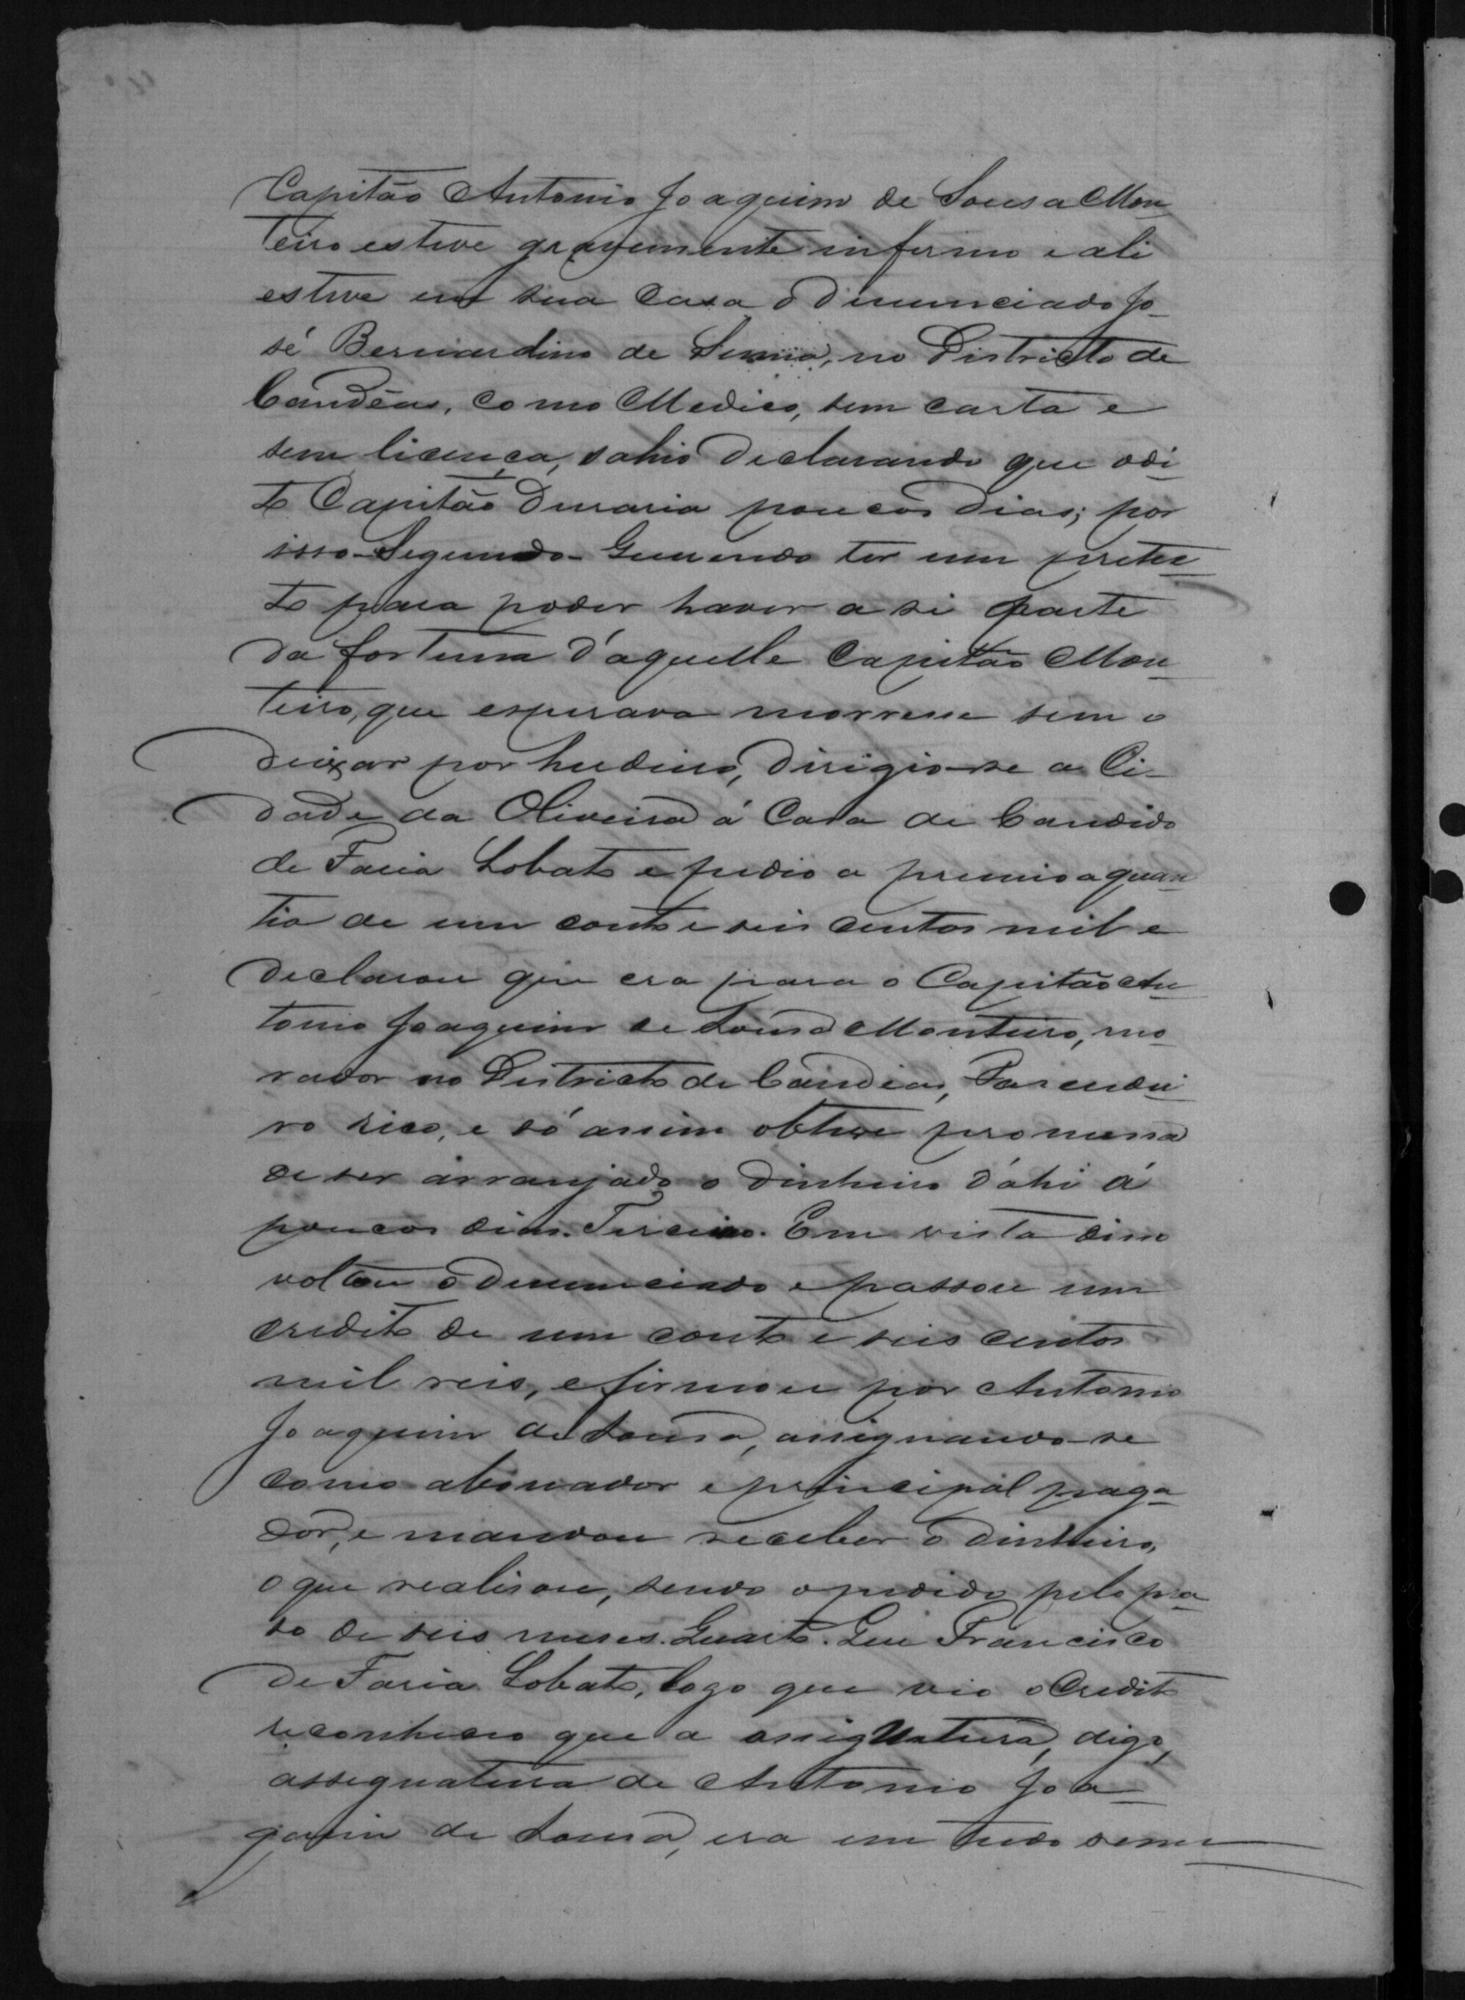 Capitão Antonio Joaquim de Sousa Mon-
teiro esteve gravemente infermo e ali
esteve em sua casa o denunciado Jo-
sé Bernardino de Senna, no Districto de
Candêas, como Medico, sem carta e
sem licença, sahio declarando que o di-
to Capitão duraria poucos dias; por
isso - Segundo - Querendo ter um pretex-
to para poder haver a si parte
da fortuna d'aquelle Capitão Mon-
teiro, que esperava morresse sem o
deixar por herdeiro, dirigio-se a Ci-
dade da Oliveira á Casa de Candido
de Faria Lobato e pedio a premio a quan
tia de um conto e seis centos mil e
declarou que era para o Capitão An-
tonio Joaquim de Sousa Monteiro, mo-
rador no Districto de Candêas, Fazendei-
ro rico, e só assim obteve promessa
de ser arranjado o dinheiro d'ahi á
poucos dias. Terceiro. Em vista disso
voltou o denunciado e passou um
credito de um conto e seis centos
mil reis, e firmou por Antonio
Joaquim de Sousa, assignando-se
como abonador e principal paga-
dor, e mandou receber o dinheiro,
o que realisou, sendo o pedido pelo pra-
so de seis meses. Quarto. Que Francisco
de Faria Lobato, logo que vio o Credito
reconheceo que a assignatura, digo,
assegnatura de Antonio Joa-
quim de Sousa, era em tudo deme